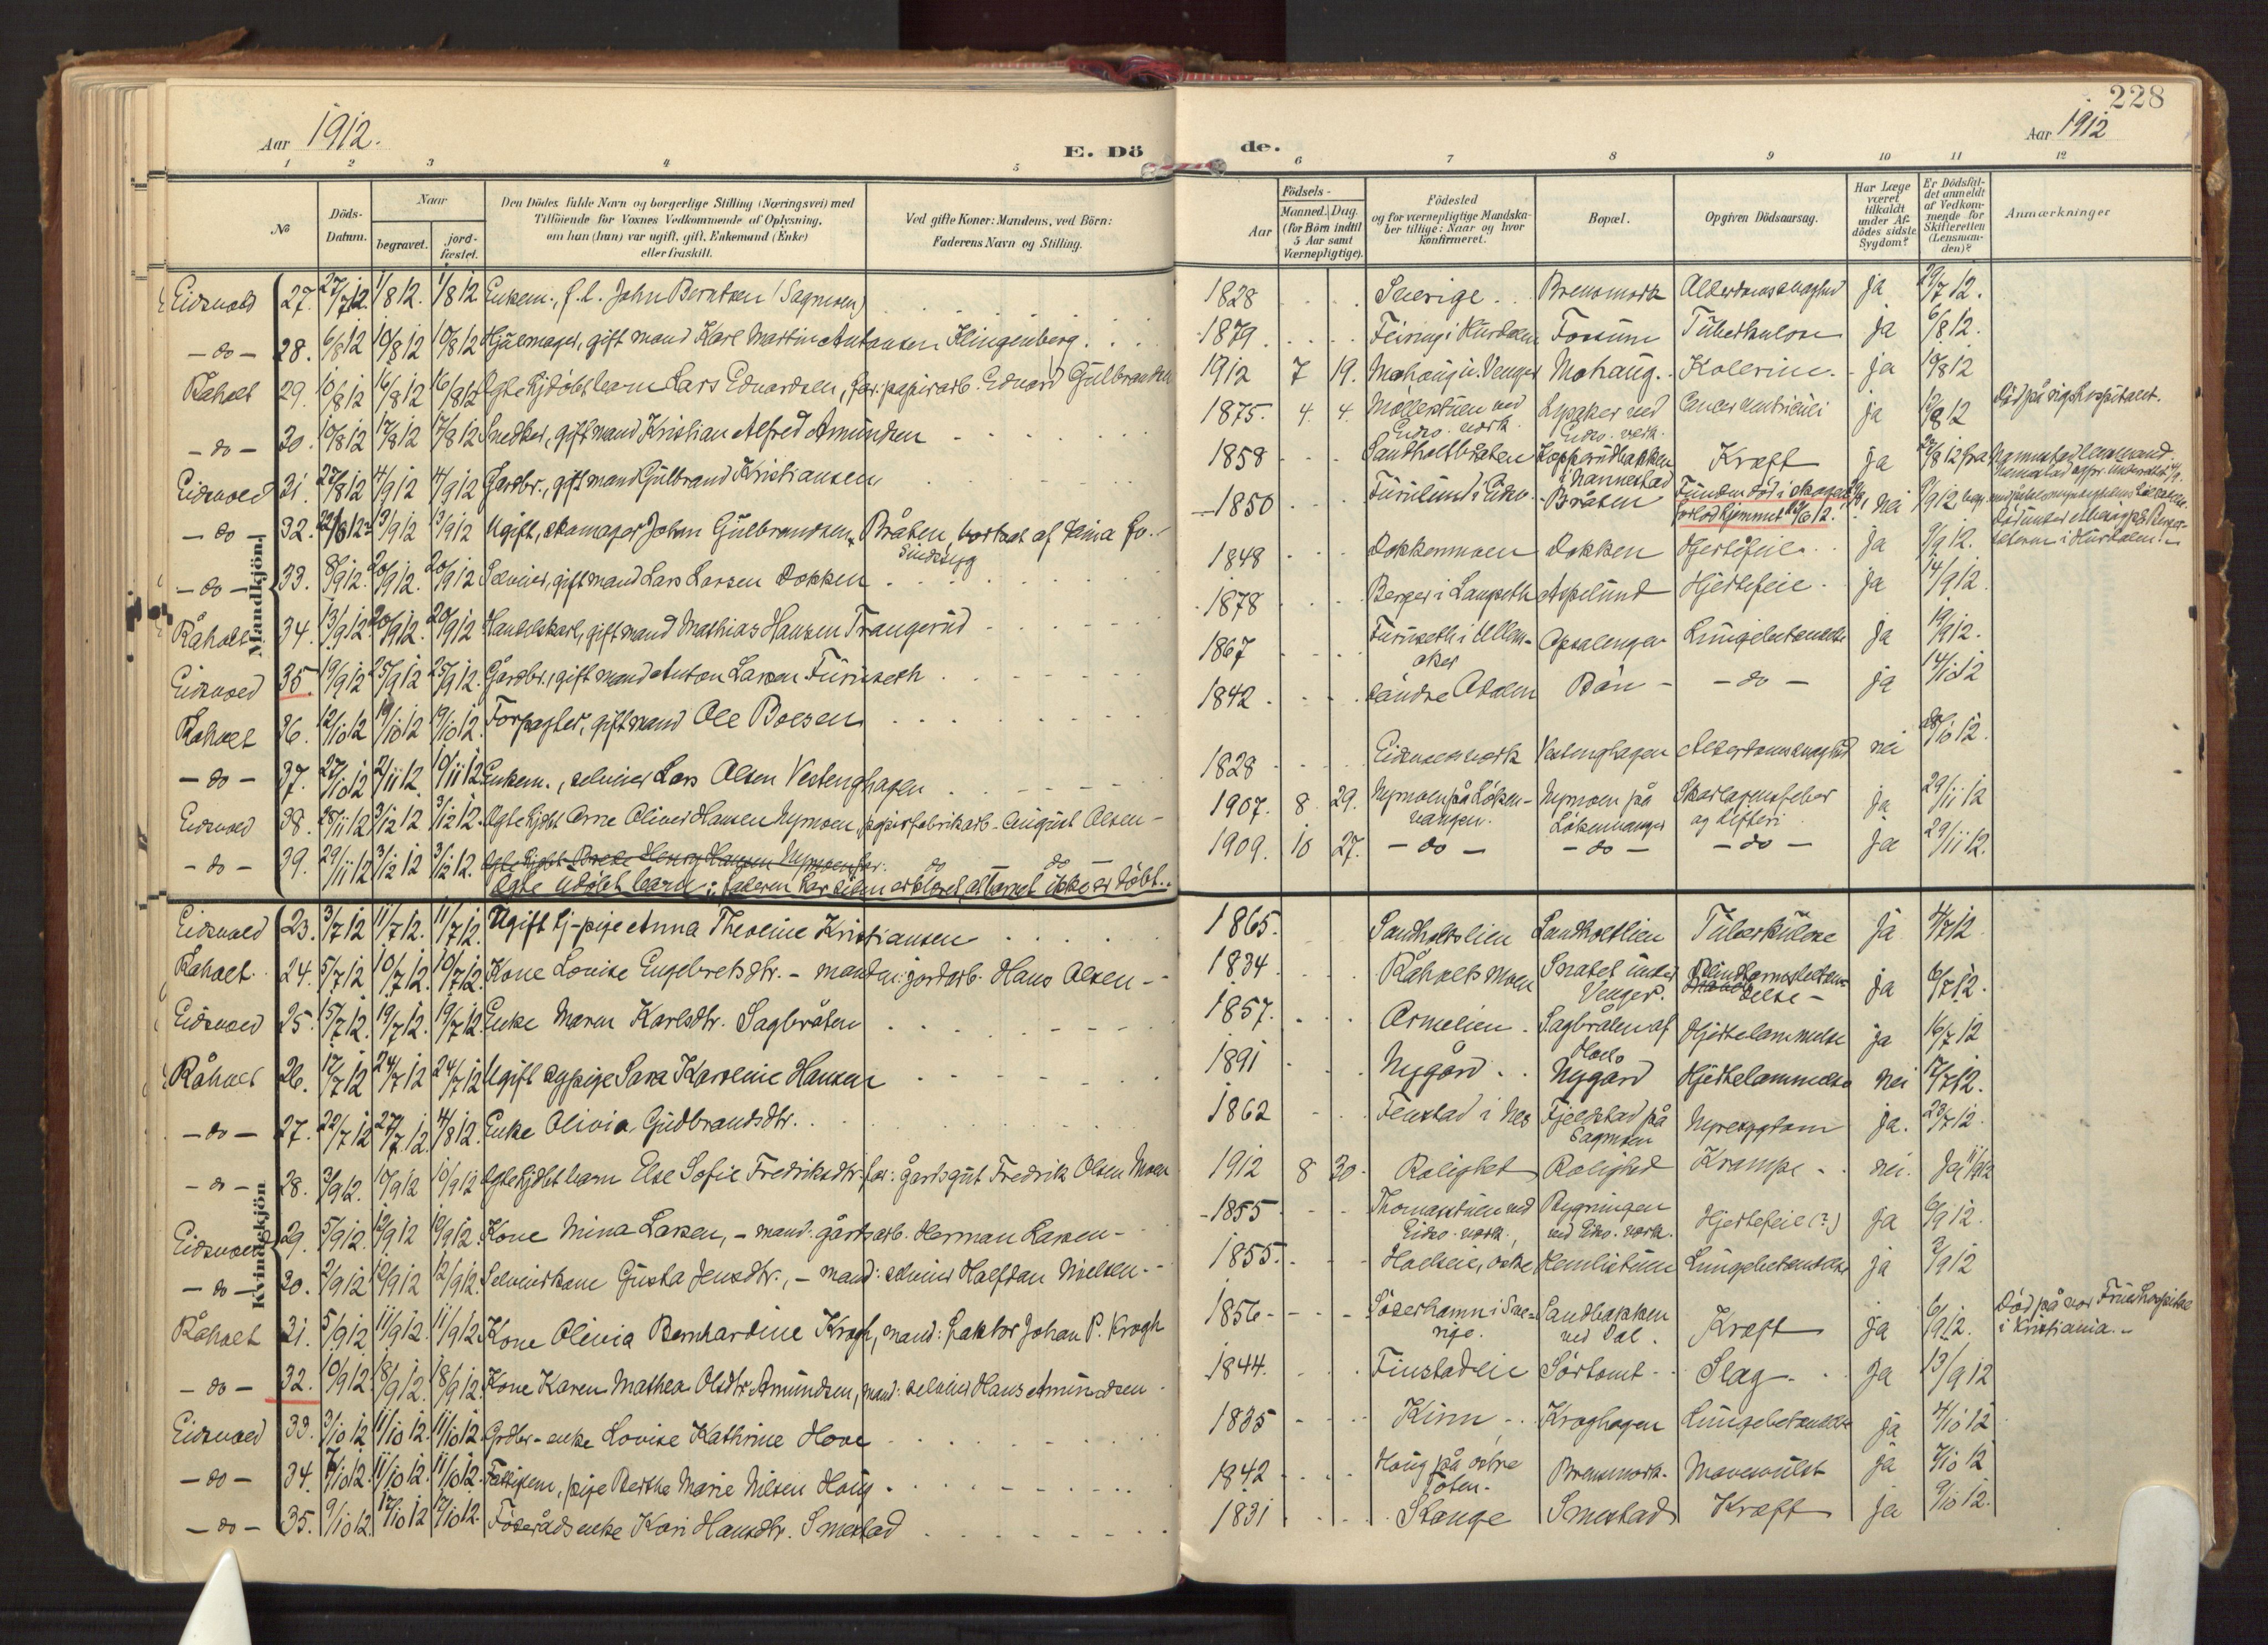 228
Aar 1912.
E. Dö
de.
Aar 1912
1 2 3 4 5 6 7 8 9 10 11 12
№
Döds-Datum.
Naar
begravet.
jord-fæstet.
Den Dödes fulde Navn og borgerlige Stilling (Næringsvei) med
Tilföiende for Voxnes Vedkommende af Oplysning,
om han (hun) var ugift, gift, Enkemand (Enke)
eller fraskilt.
Ved gifte Koner: Mandens, ved Börn:
Faderens Navn og Stilling.
Födsels-
Aar
Maaned. Dag.
(for Börn indtil
5 Aar samt
Værnepligtige).
Födested
og for værnepligtige Mandska-
ber tillige: Naar og hvor
konfirmeret.
Bopæl.
Opgiven Dödsaarsag.
Har Læge
været
tilkaldt
under Af-
dödes sidste
Sygdom?
Er Dödsfal-
det anmeldt
af Vedkom-
mende for
Skifteretten
(Lensman-
den)?
Anmærkninger
Mandkjön.
Eidsvold 27. 27/7 12. 1/8 12. 1/8 12 Enkem., f.l. John Berntsen (Sagmoen) 1828 Sverige. Brensmork Alderdomssvaghed ja 29/7 12.
- do - 28. 6/8 12 10/8 12 10/8 12 Hjulmager, gift mand Karl Martin Antonsen Klingenberg. 1879. Feiring i Hurdalen Fossum Tuberkulose ja 6/8 12.
Råholt 29. 10/8 12 16/8 12 16/8 12 Ægte hjdøbt barn Lars Edvardsen, far: papirarb. Edvard Gulbrandsen 1912 7 19. Mohaug u. Venger Mohaug. Kolerine. ja 10/8 12
- do - 30. 10/8 12 17/8 12 17/8 12 Snedker, gift mand Kristian Alfred Amundsen 1875. 4. 4. Møllerstuen ved Eidsv. værk. Lysaker ved Eidsv. værk. Cancer ventriculi ja 12/8 12 Død på rigshospitalet.
Eidsvold 31. 27/8 12 4/9 12 4/9 12 Gårdbr., gift mand Gulbrand Kristiansen 1858 Sandholtbråten Kopperudbakken i Nannestad Kræft ja 27/8 12 fra Nannestad lensmand.
- do - 32. 13/9 12 13/9 12 Ugift, skomager Johan Gulbrandsen, Bråten, bortsat af sindssyg 1850 Furulund i Eidsv. Bråten Funden død i skogen forlod hjemmet nei
- do - 33. 8/9 12. 20/9 12. 20/9 12 Selveier, gift mand Lars Larsen Dokken 1848 Dokkenmoen Dokken Hjertefeil ja 9/9 12.
Råholt 34. 13/9 12 20/9 12. 20/9 12 Handelskarl, gift mand Mathias Hansen Trangerud 1878 Berger i Langseth Aspelund Hjertefeil. ja 14/9 12.
Eidsvold 35. 19/9 12 25/9 12 25/9 12. Gårdbr., gift mand Anton Larsen Furuseth 1867 Furuseth i Ullensaker Opsalenger Lungebetændelse ja 19/9 12.
Råholt 36. 12/10 12 19/10 12 19/10 12. Forpagter, gift mand Ole Boesen 1842. Søndre Odalen Bøn - - do - ja 14/10 12
- do - 37. 27/10 12 2/11 12. 10/11 12 Enkem., selveier Lars Olsen Vestenghagen 1828 Eidsvold værk Vestenghagen Alderdomssvaghed nei 28/10 12.
Eidsvold 38. 28/11 12 3/12 12 3/12 12. Ægte hjdbt Arne Oliver Hansen Nymoen, papirfabrikarb. August Olsen - 1907. 8. 29. Nymoen på Løkenvangen. Nymoen på Løkenvangen Skarlagensfeber og difteri ja 29/11 12
- do - 39. 29/11 12 3/12 12 3/12 12. Henry Hansen Nymoen far: do do
Ægte udøbt barn: faderen har siden erklæret at barnet ikke er døbt. 1909. 10 27. - do - - do - - do - ja 29/11 12.
Kvindekjön
Eidsvold 23. 3/7 12 11/7 12. 11/7 12. Ugift tj-pige Anna Theoline Kristiansen 1865. Sandholtslien Sandholtlien Tuberkulose ja 4/7 12
Råholt. 24. 5/7 12 10/7 12. 10/7 12. Kone Lovise Engebretsdtr. - manden: jordarb. Hans Olsen - 1834 Råholtsmoen Snatet under Venger. Blindtarmsbetændelse - ja 6/7 12.
Eidsvold 25. 15/7 12. 19/7 12. 19/7 12. Enke Maren Karlsdtr. Sagbråten 1857. Ormelien. Sagbråten af Hols Hjertelammelse ja 16/7 12
Råholt 26. 17/7 12 24/7 12 24/7 12 Ugift sypige Sara Karoline Hansen 1891 Nygård. Nygård Hjertelammelse nei 17/7 12.
- do - 27. 22/7 12 27/7 12 4/8 12. Enke Olivia Gudbrandsdtr. 1862 Fenstad i Nes Fjeldstad på Sagmoen Nyresygdom ja. 23/7 12.
- do - 28. 3/9 12. 10/9 12 10/9 12 Ægte hjdbt barn Else Sofie Fredriksdtr. far: gårdsgut Fredrik Olsen Moen 1912 8 30. Rolighet Rolighed Krampe nei. ja 11/9 12
Eidsvold 29. 5/9 12. 12/9 12 12/9 12. Kone Mina Larsen, - mand: gårdsarb. Herman Larsen - 1855 Thomasstuen ved Eidsv. værk., Bygningen ved Eidsv. værk. Hjertefeil (?) ja 6/9 12.
- do - 30. 2/9 12 12/9 12 12/9 12. Selveierkone Gusta Jensdtr., - mand: selveier Halfdan Nielsen. - 1855. Holseie, østre Hemlistuen Lungebetændelse ja 3/9 12
Råholt 31. 5/9 12 11/9 12. 11/9 12 Kone Olivia Bernhardine Krogh, mand: faktor Johan P. Krogh 1856 Söderhamn i Sverige. Sandbakken ved Dal. Kræft ja 6/9 12. Død på vor Frues hospital i Kristiania. -
- do - 32. 10/9 12 18/9 12. 18/9 12. Kone Karen Mathea Olsdtr. Amundsen, mand: selveier Hans Amundsen 1844. Finstadeie Sørtomt Slag. ja 13/9 12
Eidsvold 33. 3/10 12 11/10 12. 11/10 12. Grdbr-enke Lovise Kathrine Hove 1835 Kinn Kroghagen Lungebetændelse ja 4/10 12
- do - 34. 7/10 12. 11/10 12. 11/10 12. Fattiglem, pige Berthe Marie Nilsen Haug. 1842 Haug på østre Toten. Brensmork. Mavesvulst ja 7/10 12
- do - 35. 9/10 12 17/10 12 17/10 12. Føderådsenke Kari Hansdtr. Smestad 1831 Stange Smestad Kræft ja 9/10 12.